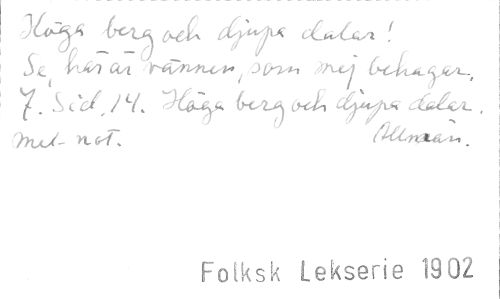 Höga berg och djupa dalar!
Se, här är vännen, som mej behagar.
7. Sid. 14. Höga berg och djupa dalar.
mel- not. Allmän.
Folksk Lekserie 1902